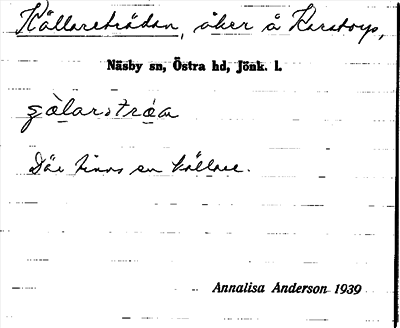 Källarehrådan, åker å Karstorp,
Näsby sn, Östra hd, Jönk. l.
Där finns en källare.
Annalisa Anderson 1939